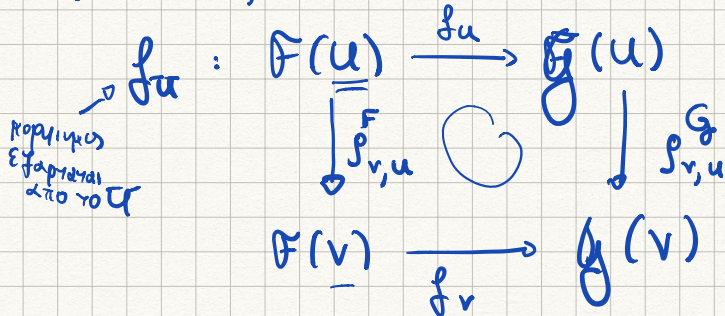 f_u
f_U : F(U) → G(U)
μορφισμός
εξαρτάται
από το U
ρ^F_{v,u} ρ^G_{v,u}
F(V) → G(V)
f_v